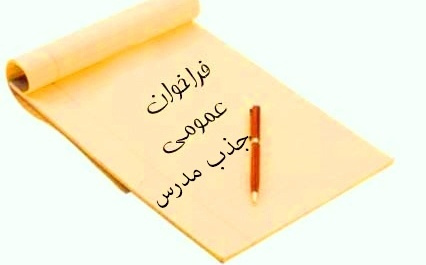 فراخوان
عمومی
جذب مدرس